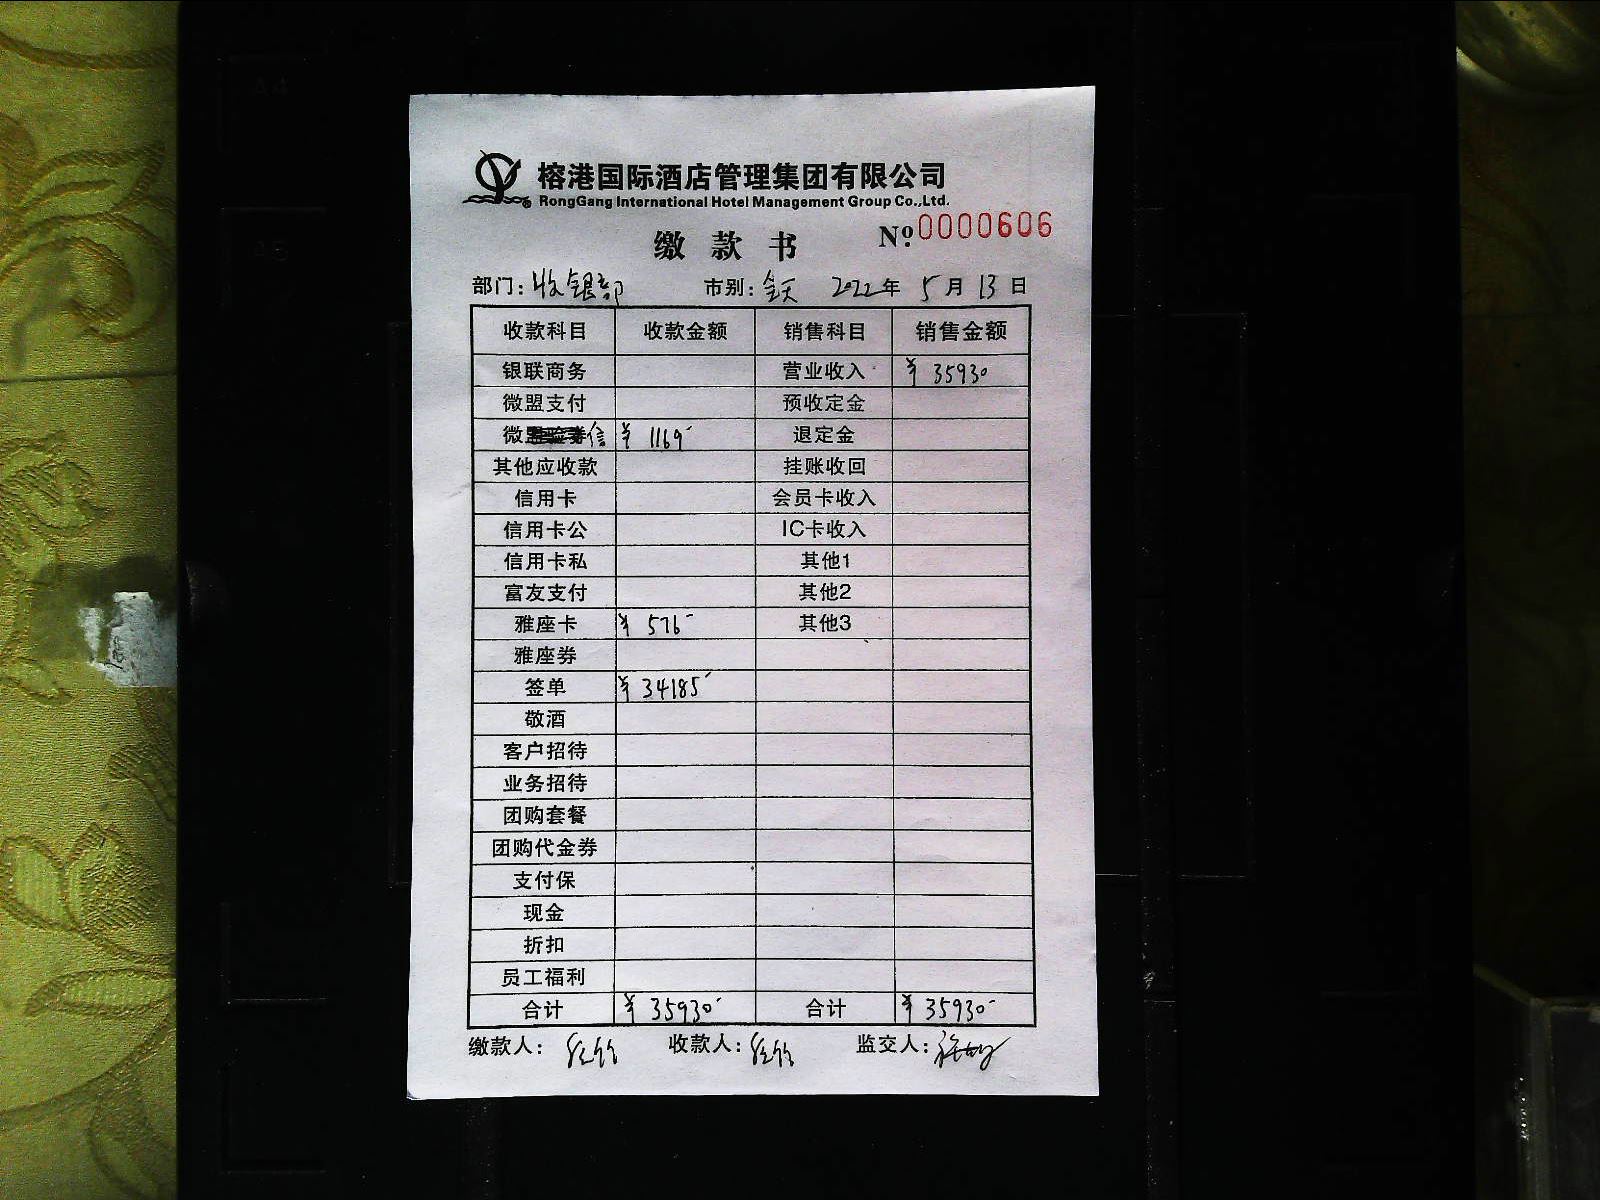 榕港国际酒店管理集团有限公司
RongGang International Hotel Management Group Co.,Ltd.
缴款书 №:0000606
部门:收银部 市别:全天 2022年 5月 13日
收款科目 收款金额 销售科目 销售金额
银联商务 营业收入 ¥ 35930
微盟支付 预收定金
微信 ¥ 1169 退定金
其他应收款 挂账收回
信用卡 会员卡收入
信用卡公 IC卡收入
信用卡私 其他1
富友支付 其他2
雅座卡 ¥ 576 其他3
雅座券
签单 ¥ 34185
敬酒
客户招待
业务招待
团购套餐
团购代金券
支付保
现金
折扣
员工福利
合计 ¥ 35930 合计 ¥ 35930
缴款人: 收款人: 监交人: